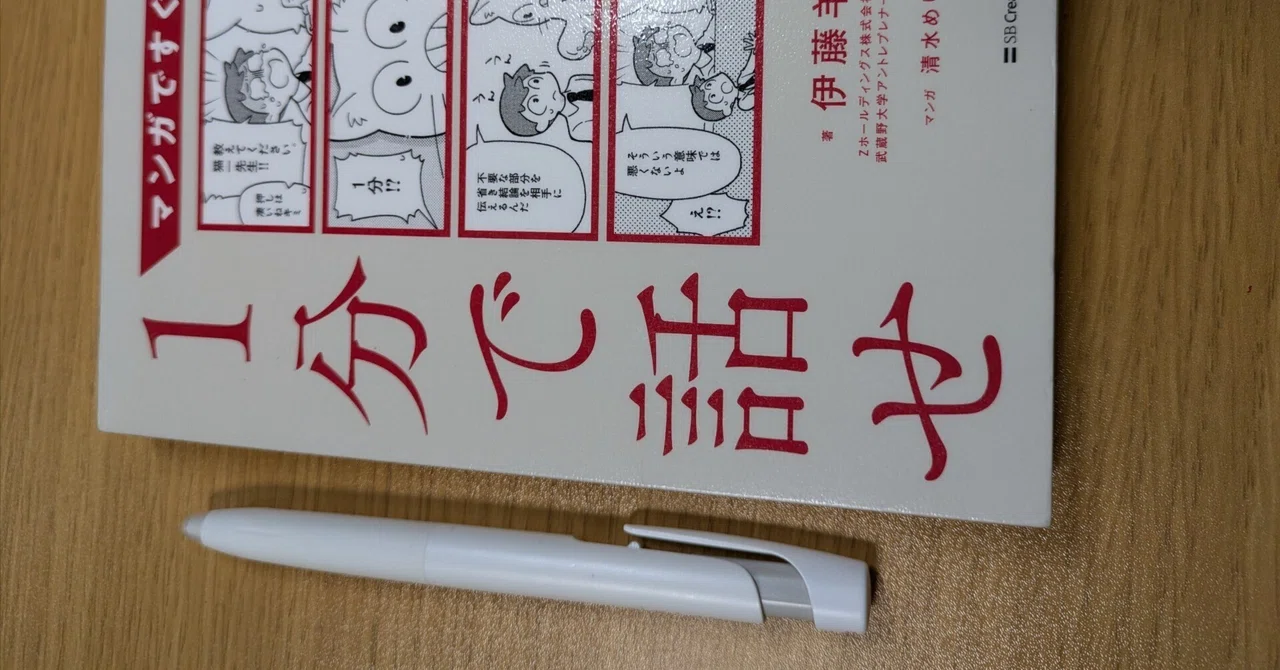 マンガですぐ
教えてください。
猫一先生!!
押しは
凄いねキミ
1分!?
うん
うん
不要な部分を
省き結論を相手に
伝えるんだ
そういう意味では
悪くないよ
え!?
1分で話せ
著
伊藤羊
Zホールディングス株式会社
武蔵野大学アントレプレナー
マンガ 清水め
SB Cre